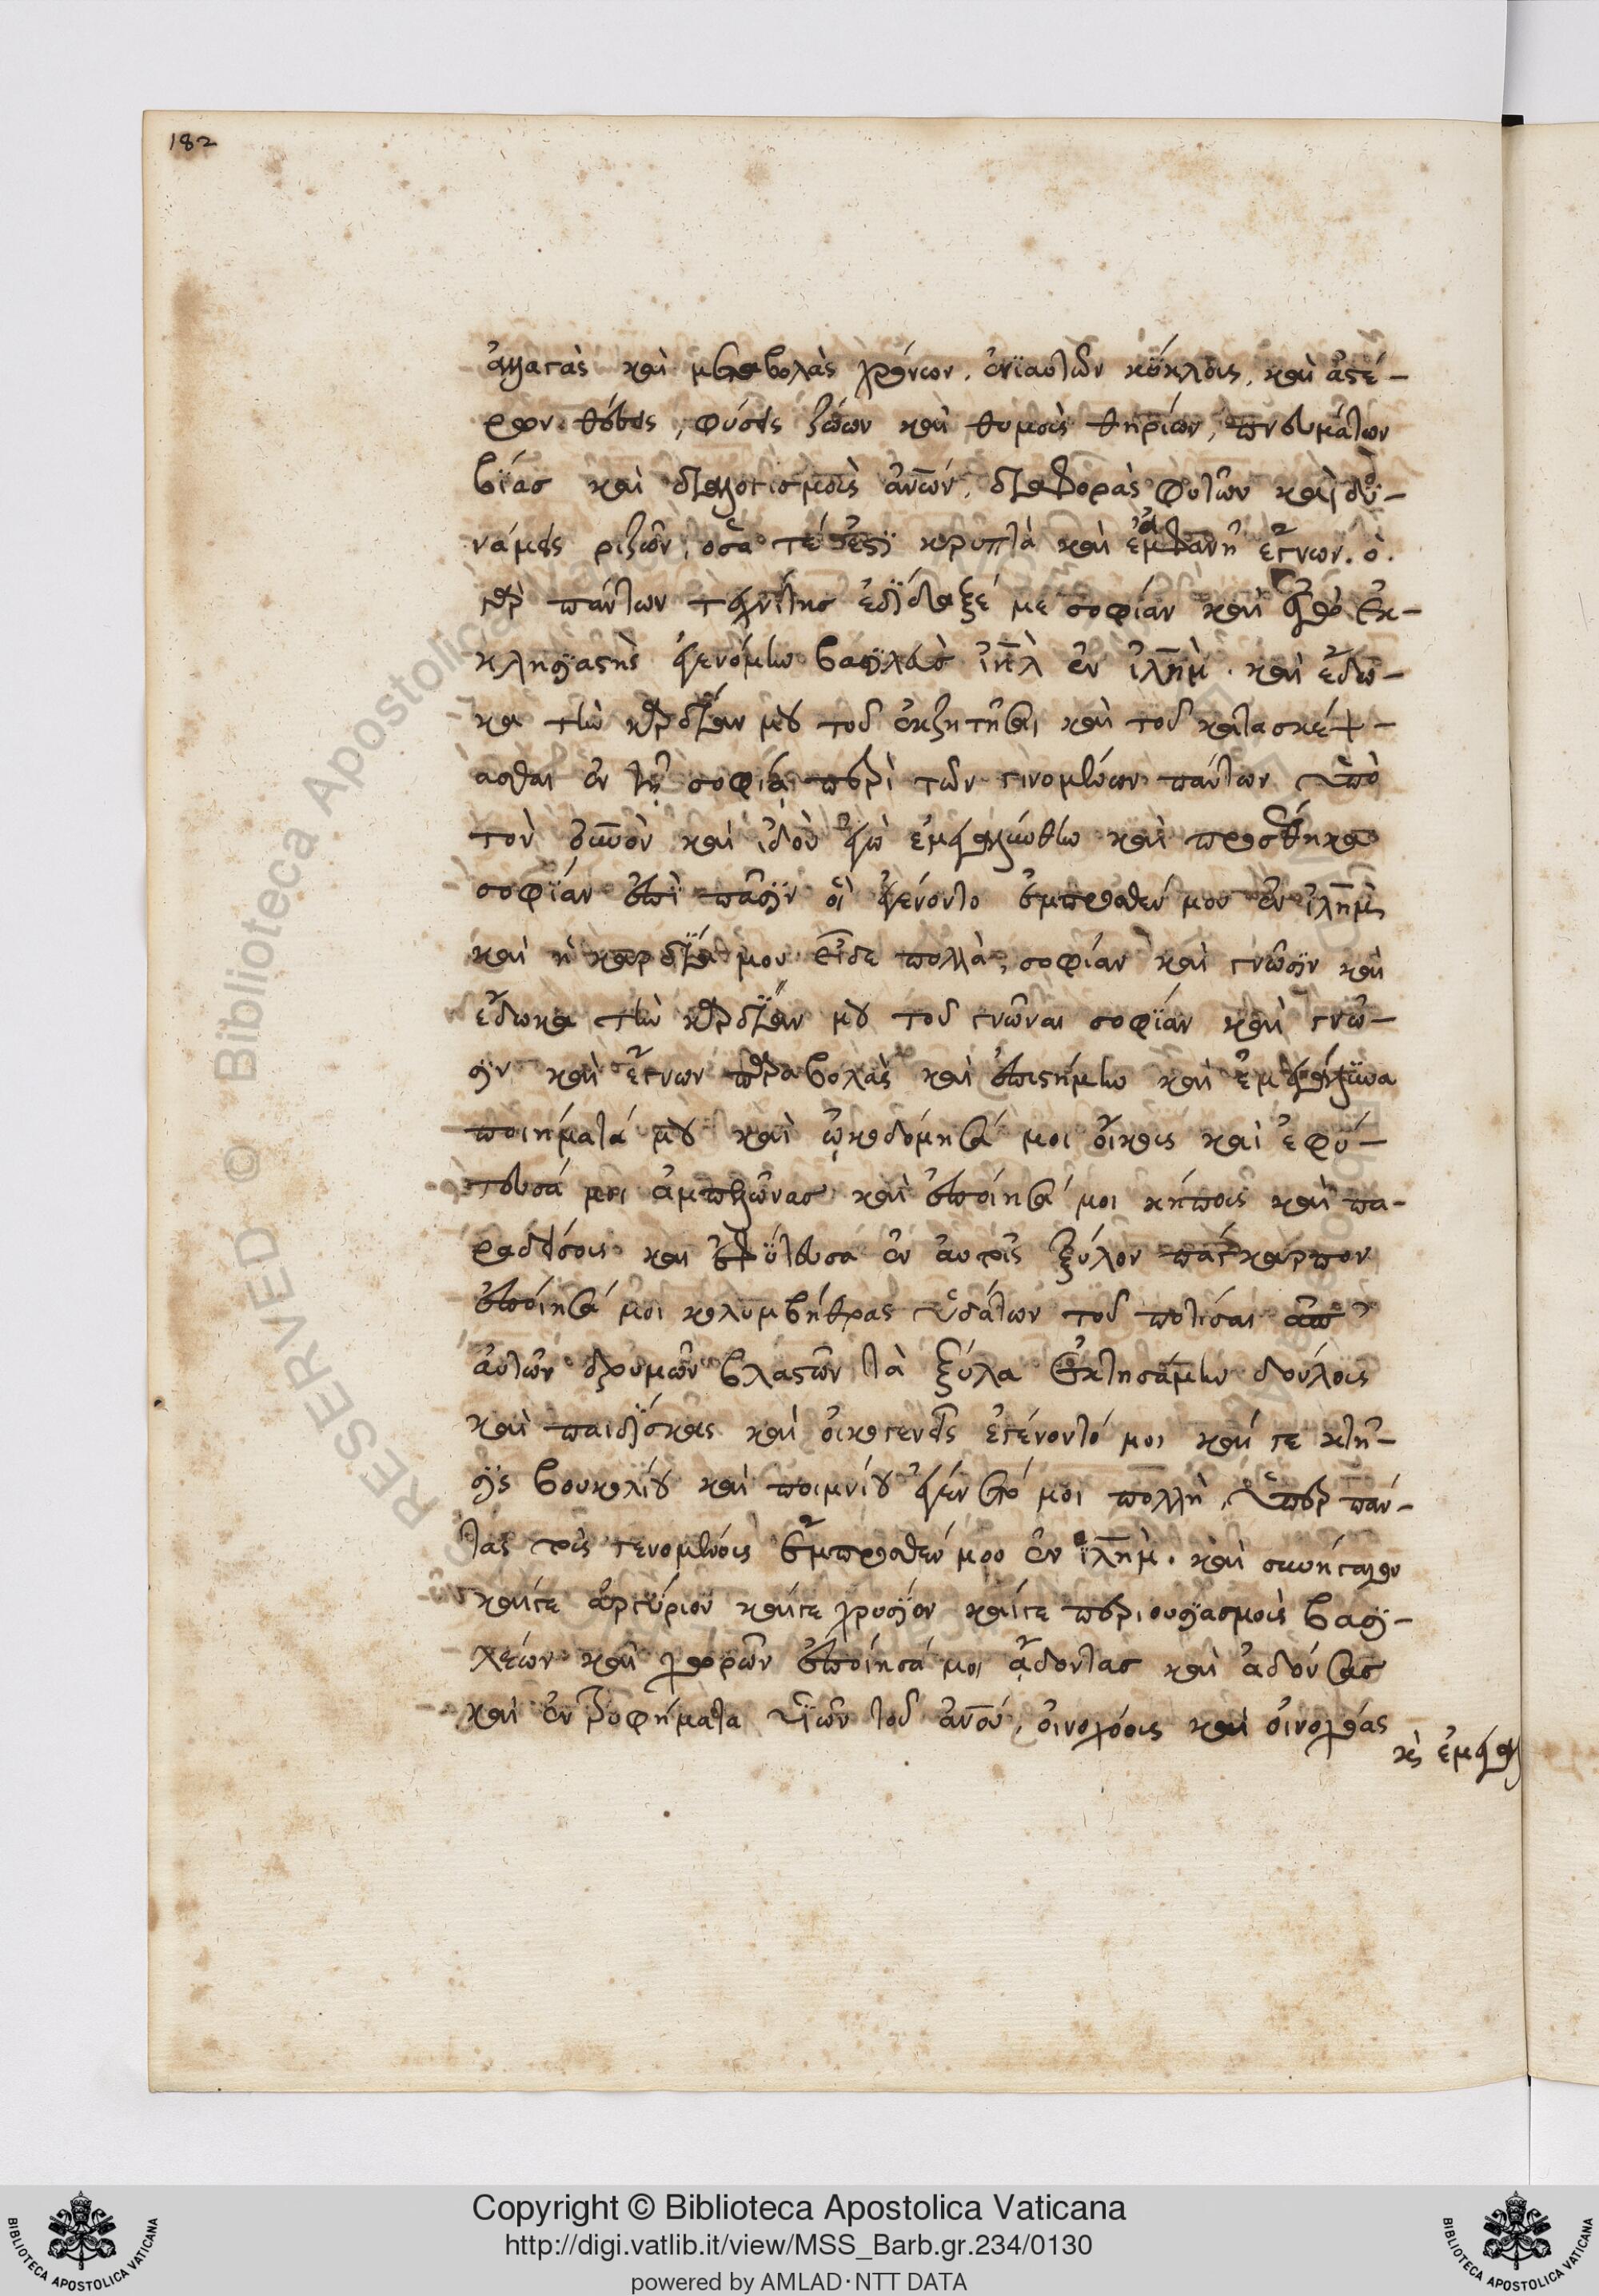 182
ἀλλαγὰς καὶ μεταβολὰς χρόνων. ἐνϊαυτῶν κύκλοις, καὶ ἀστέ-
ρων θέσεις, φύσεις ζώων καὶ θυμοὺς θηρίων, πνευμάτων
βίας καὶ διαλογισμοὺς ἀν̅ων, διαφορὰς φυτῶν καὶ δυ-
νάμεις ριζῶν, ὅσα τέ ἐστϊ κρυπτὰ καὶ ἐμφανῆ ἔγνων. ὁ
γὰρ πάντων τεχνίτης ἐδίδαξέ με σοφίαν καὶ ἐγὼ ἐκ-
κλησϊαστὴς ἐγενόμην βασϊλεὺς ἰη̅λ ἐν ἰλη̅μ. καὶ ἔδω-
κα τὴν καρδίαν μου τοῦ ἐκζητῆσαι καὶ τοῦ κατασκέψ-
ασθαι ἐν τῇ σοφίᾳ περὶ τῶν γινομένων πάντων ὑπὸ
τὸν οὐ̅νὸν καὶ ἰδοὺ ἐγὼ ἐμεγαλύνθην καὶ προσέθηκα
σοφίαν ἐπὶ πᾶσϊν οἳ ἐγένοντο ἔμπροσθέν μου ἐν ἰλη̅μ
καὶ ἡ καρδία μου εἶδε πολλὰ, σοφίαν καὶ γνῶσϊν καὶ
ἔδωκα τὴν καρδίαν μου τοῦ γνῶναι σοφίαν καὶ γνῶ-
σϊν καὶ ἔγνων παραβολὰς καὶ ἐπιστήμην καὶ ἐμεγάλυνα
ποιήματά μου καὶ ᾠκοδόμησά μοι οἴκοις καὶ ἐφύ-
τευσά μοι ἀμπελῶνας καὶ ἐποίησά μοι κήποις καὶ πα-
ραδείσοις και ἐφύτευσα ἐν αὐτοῖς ξύλον πάγκαρπον
ἐποίησά μοι κολυμβήθρας ὑδάτων τοῦ ποτίσαι ἀπ'
αὐτῶν δρυμῶν βλαστῶν τὰ ξύλα ἐκτησάμην δούλοις
καὶ παιδίσκας καὶ οἰκογενεῖς ἐγένοντό μοι καί γε κτῆ-
σϊς βουκολίου καὶ ποιμνίου ἐγένετό μοι πολλὴ, ὑπὲρ πάν-
τας τοὺς γενομένοις ἔμπροσθέν μου ἐν ἰλη̅μ. καὶ συνήγαγον
καίγε ἀργύριον καίγε χρυσϊον καίγε περιουσϊασμοὺς βασϊ-
λέων καὶ χωρῶν ἐποίησά μοι ᾄδοντας καὶ ἀδούσας
καὶ ἐντρυφήματα υἱῶν τοῦ ἀν̅ου, οἰνοχόοις καὶ οἰνοχόας
κὶ ἐμεγαλ
RESERVED © Biblioteca Apostolica Vaticana
Copyright © Biblioteca Apostolica Vaticana
http://digi.vatlib.it/view/MSS_Barb.gr.234/0130
powered by AMLAD·NTT DATA
BIBLIOTECA APOSTOLICA VATICANA
BIBLIOTECA APOSTOLICA VATICANA